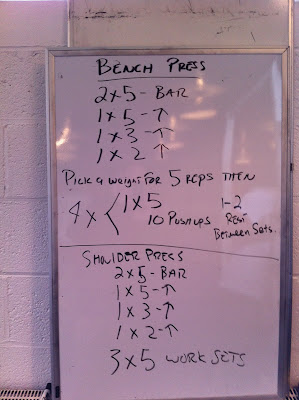 BENCH PRESS
2x5 - BAR
1x5 - ↑
1x3 - ↑
1x2 ↑
PICK A WEIGHT FOR 5 REPS THEN
4x < 1x5
10 PUSHUPS
1-2
REST
BETWEEN SETS.
SHOULDER PRESS
2x5 - BAR
1x5 - ↑
1x3 - ↑
1x2 - ↑
3x5 WORK SETS